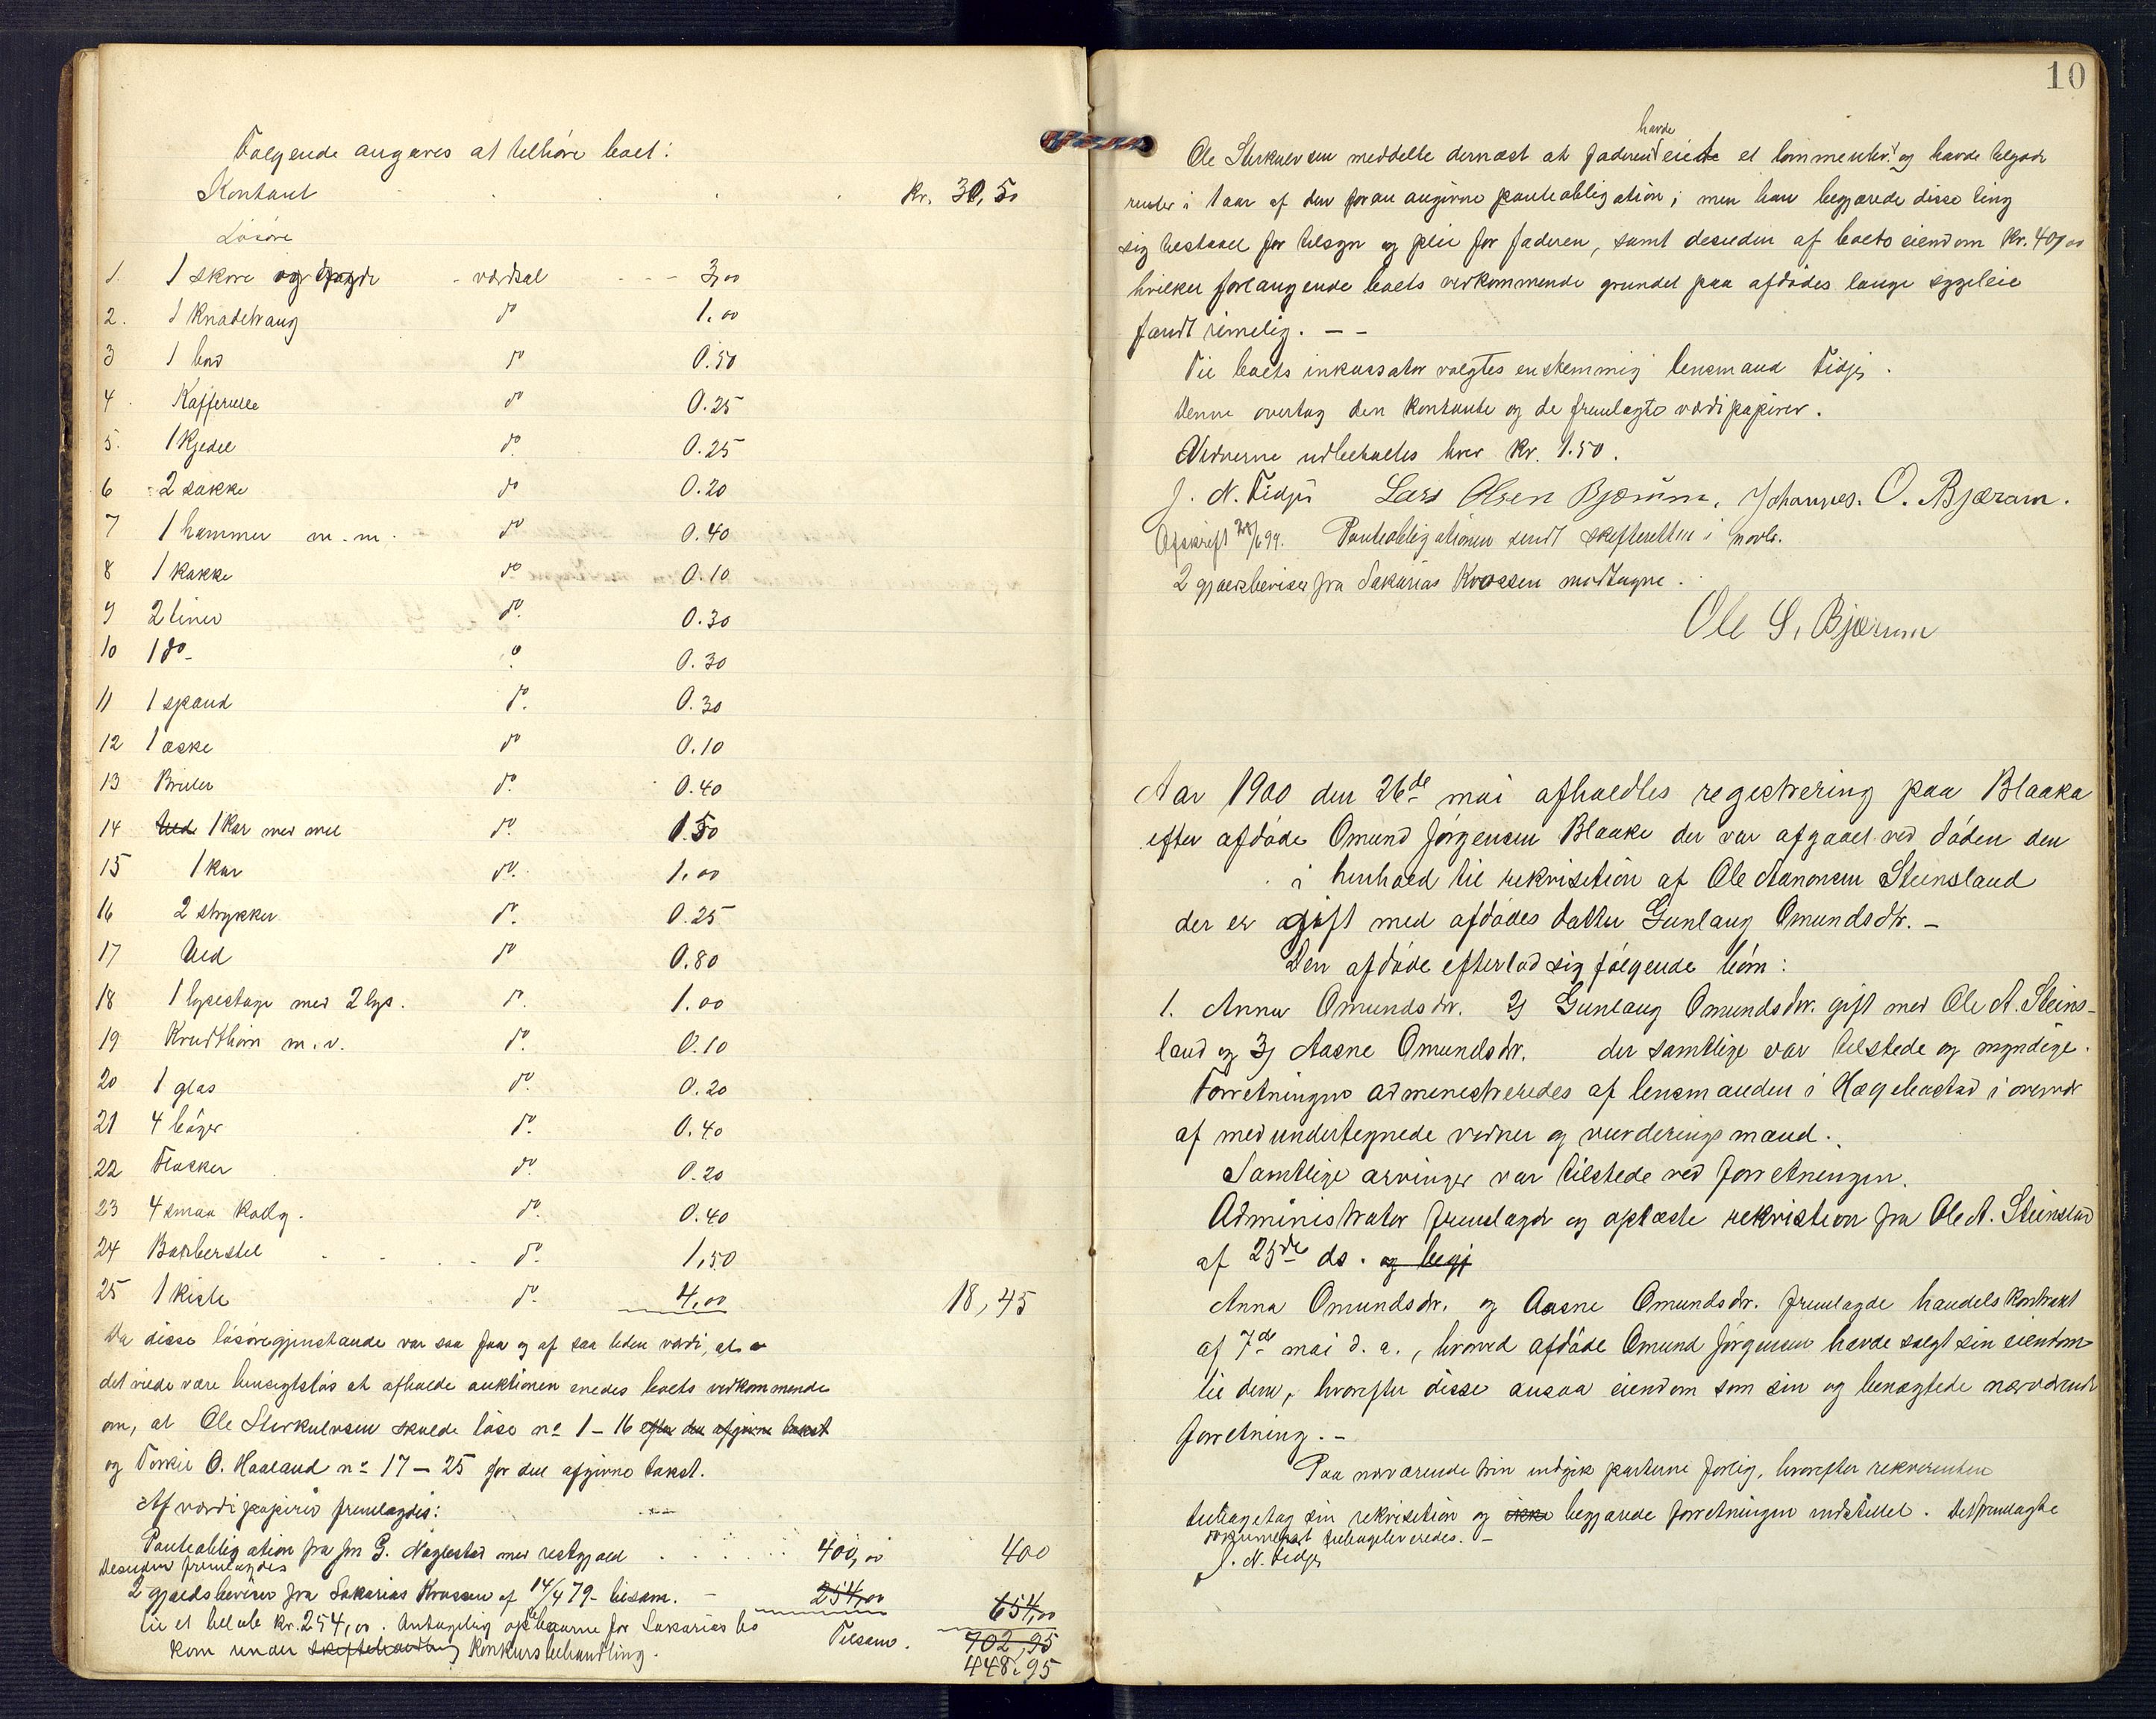 Følgende angaves at tilhøre boet:
Kontant . . . . kr. 30,50
Løsøre
1. 1 skore og værdsat - - - 3,00
2. 1 Knadetraug do 1.00
3 1 bord do 0.50
4. Kafferulle do 0.25
5. 1 Kjedel do 0.25
6 2 sække do 0.20
7 1 hammer m. m. do 0.40
8 1 kakke do 0.10
9 2 tiner do 0.30
10 1 do - do 0.30
11 1 spand do 0.30
12 1 æske do 0.10
13 Briller do 0.40
14 Ued 1 Kar med mel do 1.50
15 1 kar do 1.00
16 2 stykker do 0.25
17 Ued do 0.80
18 1 lysestage med 2 lys. do 1.00
19 Krudthorn m. v. do 0.10
20 1 glas do 0.20
21 4 bøger do 0.40
22 Flasker do 0.20
23 4 smaa kolly. do 0.40
24 Barberstel do 1,50
25 1 kiste do 4,00 18,45
Da disse løsøregjenstande var saa faa og af saa liden værdi, at
det vilde være hensigtsløs at afholde auktionen enedes boets vedkommende
om, at Ole Sterkulvsen skulde løse no 1 - 16 efter den afgivne takst
og Torkil O. Haaland no 17 - 25 for den afgivne takst.
Af værdipapirer fremlagdes:
Panteobligation fra Jon G. Naglestad med restgjæld . . . . . 400,00 400
Desuden fremlagdes
2 gjældsbeviser fra Sakarias Krossen af 14/4 79 - tilsam. - 254,00 654,00
til et beløb kr. 254,00. Antagelig op for Sakarias bo Tilsam. 702,95
kom under skiftebehandling Konkursbehandling. 448,95
10
havde
Ole Sterkulvsen meddelte dernæst at faderen eiede et lommeuhr og havde tilgode
renter i 1 aar af den foran angivne panteobligation; men han begjærede disse ting
sig tilstaaet for tilsyn og pleie for faderen, samt desuden af boets eiendom kr. 40,00
hvilken forlangende boets vedkommende grundet paa afdødes lange sygeleie
fandt rimelig. - -
Til boets inkassator valgtes enstemmig lensmand Tidjes.
Denne overtog den kontante og de fremlagte værdipapirer.
Vidnerne udbetaltes hver kr. 1.50.
J. N. Tidjes Lars Olsen Bjærum, Johannes. O. Bjærum.
Afskrift 28/6 99. Panteobligationen sendt skifteretten i novb.
2 gjældsbeviser fra Sakarias Krossen modtagne.
Ole S. Bjærum
Aar 1900 den 26de mai afholdtes registrering paa Blaaka
efter afdøde Omund Jørgensen Blaake der var afgaaet ved døden den
i henhold til rekvisition af Ole Aanonsen Steinsland
der er gift med afdødes datter Gunlaug Omundsdtr. -
Den afdøde efterlod sig følgende børn:
1. Anna Omundsdtr. 2) Gunlaug Omundsdtr. gift med Ole A. Steins-
land og 3) Aasne Omundsdtr. der samtlige var tilstede og myndige.
Forretningen administreredes af lensmanden i Hægebostad i overvær
af medundertegnede vidner og vurderingsmænd.
Samtlige arvinger var tilstede ved forretningen.
Administrator fremlagde og oplæste rekvistion fra Ole A. Steinsland
af 25de ds. og begj
Anna Omundsdtr. og Aasne Omundsdtr. fremlagde handelskontrakt
af 7de mai d. a., hvorved afdøde Omund Jørgensen havde solgt sin eiendom
til dem, hvorefter disse ansaa eiendom som sin og benægtede nærværende
forretning. -
Paa nærværende trin indgik parterne forlig, hvorefter rekvirenten
tilbagetog sin rekvisition og ikke begjærede forretningen indstillet. Det fremlagte
dokument tilbageleveredes. -
J. N. Tidjes